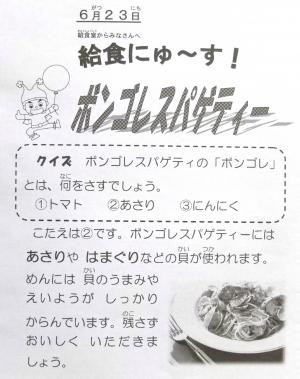 6月23日
給食室からみなさんへ
給食にゅ～す！
ボンゴレスパゲティー
クイズ　ボンゴレスパゲティの「ボンゴレ」
とは、何をさすでしょう。
①トマト　②あさり　③にんにく
こたえは②です。ボンゴレスパゲティーには
あさりや はまぐりなどの貝が使われます。
めんには 貝のうまみや
えいようが しっかり
からんでいます。残さず
おいしく いただきま
しょう。